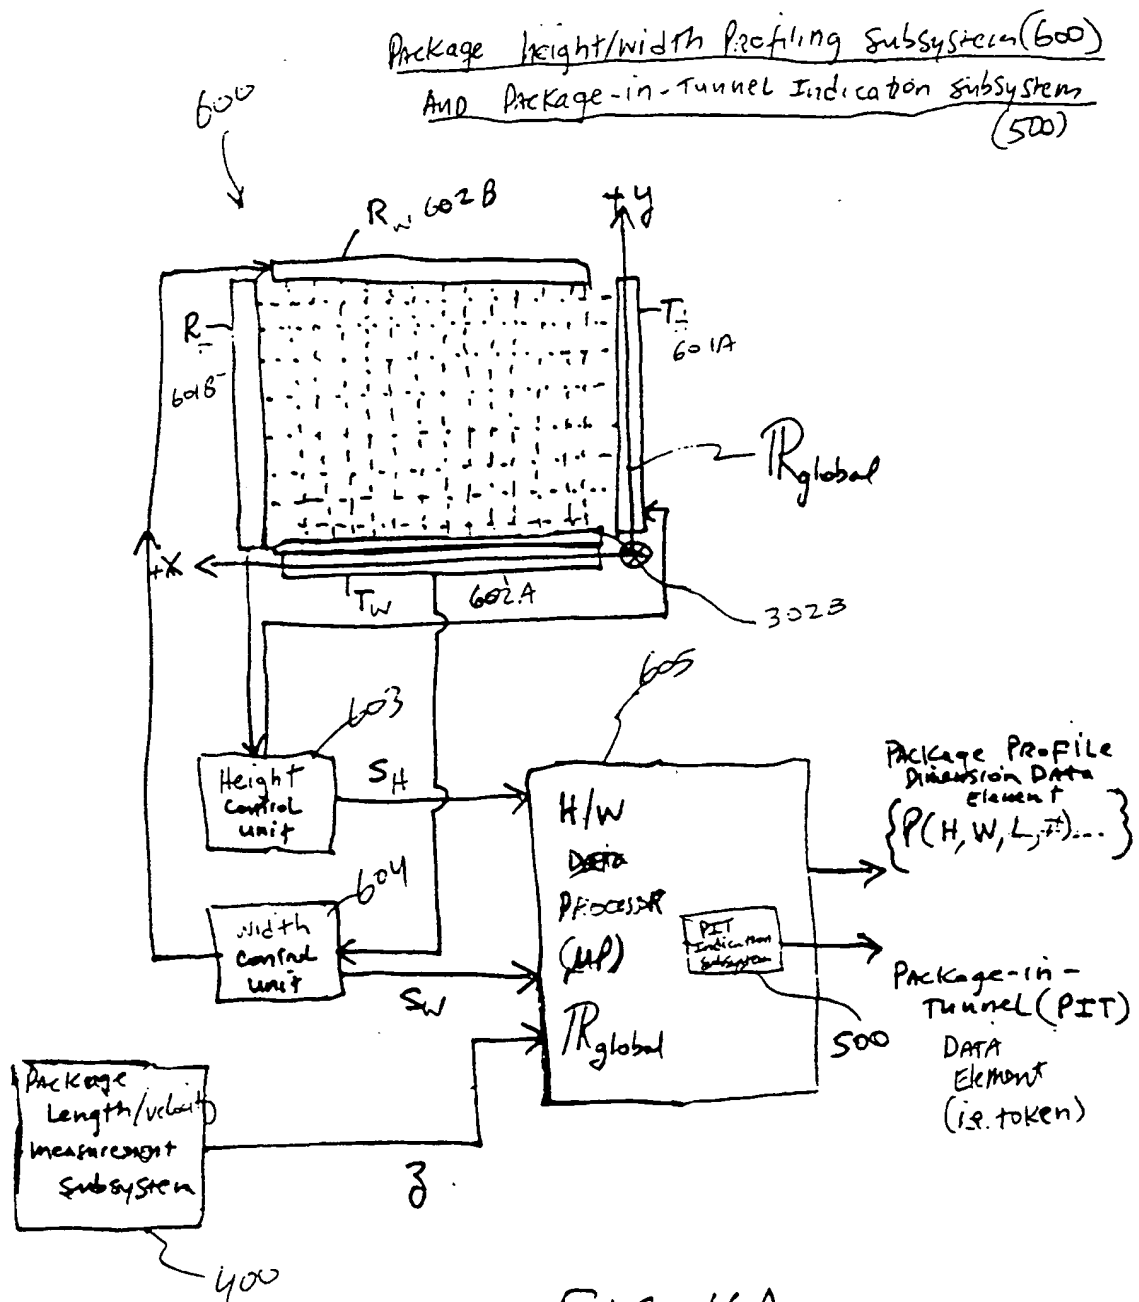 Package Height/Width Profiling Subsystem (600)
And Package-in-Tunnel Indication Subsystem
(500)
600
Rw 602B
+y
R
601B
T
601A
Rglobal
+X
Tw
602A
302B
605
603
Height
Control
unit
SH
604
Width
Control
unit
SW
H/W
Data
Processor
(µP)
Rglobal
PIT
Indication
Subsystem
500
Package Profile
Dimension Data
Element
{P(H, W, L, t)...}
Package-in-
Tunnel (PIT)
Data
Element
(i.e. token)
Package
Length/velocity
measurement
Subsystem
400